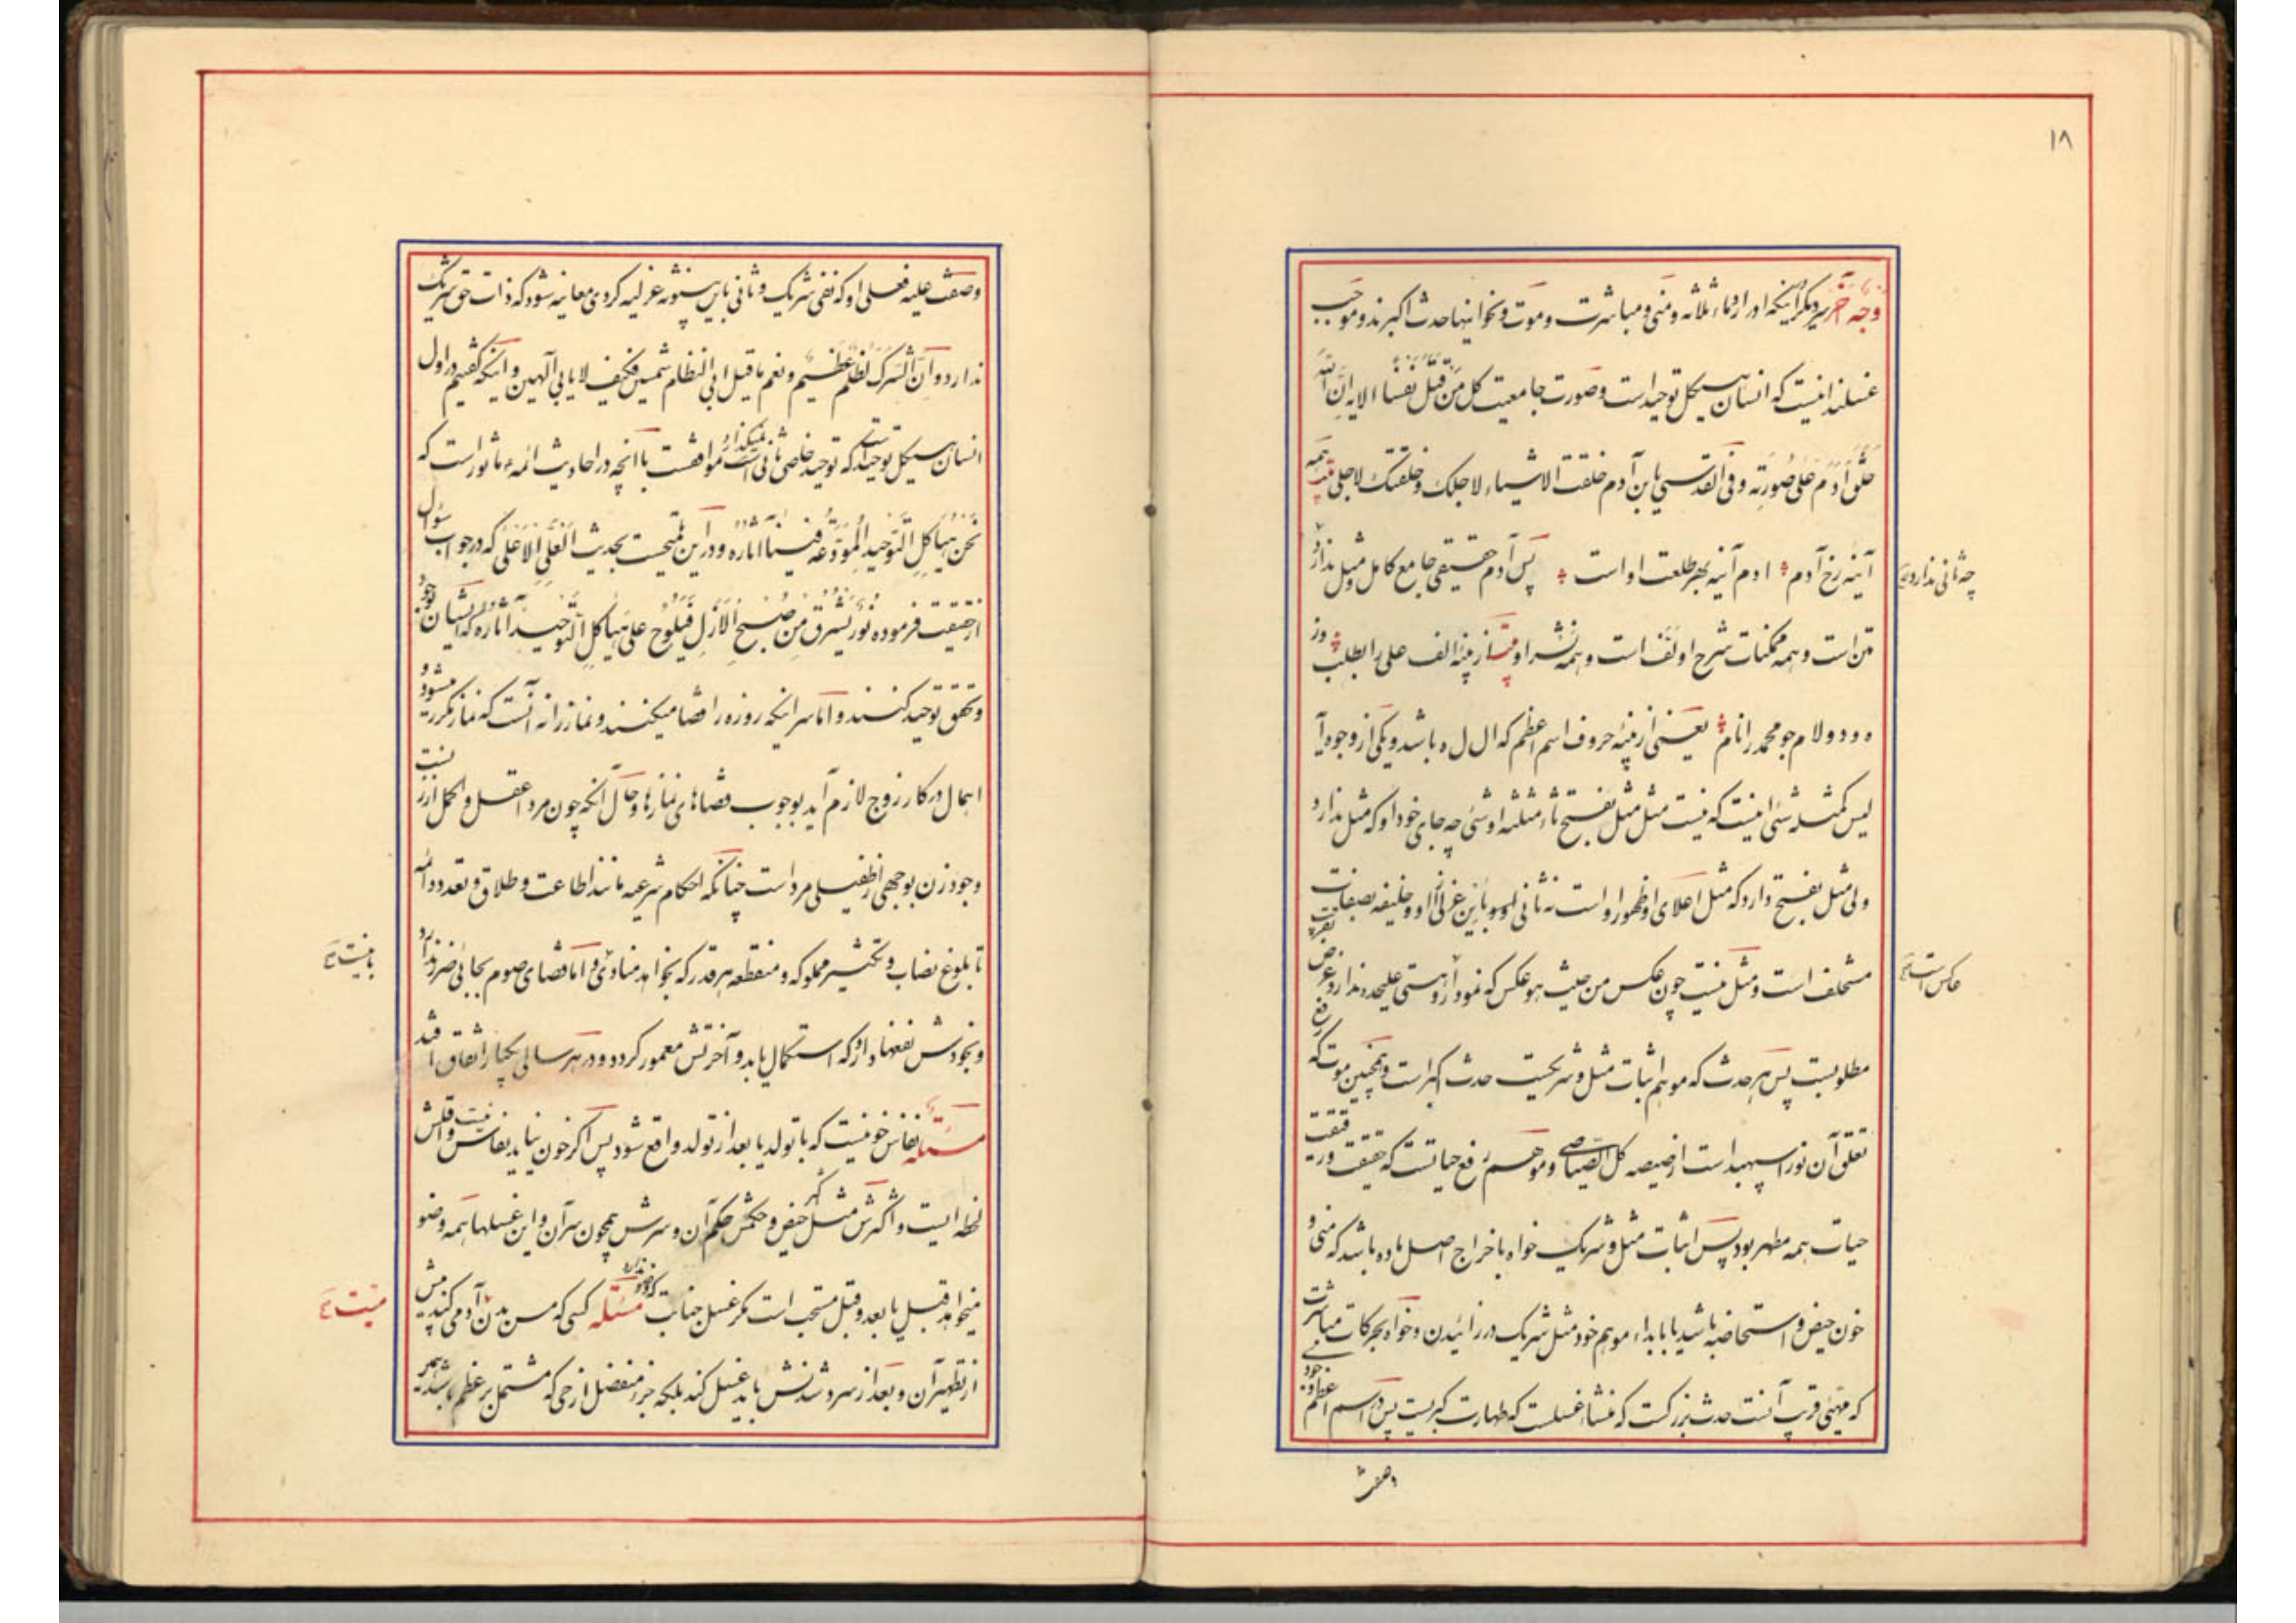 ۱۸
وجه آخر سر دیگر اینکه اوراد دماء ثلاثه و منی و مباشرت و موت و نحو اینها حدث اکبرند و موجب
غسلند اینست که انسان هیکل توحید است و صورت جامعیت کل من قتل نفسا الایه ان الله
خلق آدم علی صورته و فی القدسی یابن آدم خلقت الاشیاء لاجلک و خلقتک لاجلی بیت همه
آینهٔ رخ آدم آدم آینه بهر طلعت او است پس آدم حقیقی جامع کامل و مثل ندارد
چه ثانی ندارد
متن است و همه ممکنات شرح او لف است و همه نشر او بیت از بینهٔ الف علی را بطلب وز
ه و دو لام جو محمد را نام یعنی از بینهٔ حروف اسم اعظم که ال ل ه باشد و یکی از وجوه آیه
لیس کمثله شئ اینست که نیست مثل مثل بفتح ثاء مثلثه او شئ چه جای خود او که مثل ندارد
ولی مثل بفتح دارد که مثل اعلای او ظهور او است نه ثانی او و باین عزلی از او و خلیفه بصفات
متخلف است و مثل نیست چون عکس من حیث هو عکس که نمود از او هستی علیحده ندارد غرض
عاکس است
مطلوبست پس هر حدث که موهم اثبات مثل و شریکیست حدث اکبر است و همچنین موت که رفع
تعلق آن نور اسپهبد است از صیصیه کل الصیاصی و موهم رفع حیاتست که حقیقت و رقیقت
حیات همه مطهر بود پس اثبات مثل و شریک خواه باخراج اصل ماده باشد که منی و
خون حیض و استحاضه باشد یا بابداء موهم خود مثل شریک در زائیدن و خواه بحرکات مباشرت
که مهیئ قریب آنست حدث بزرگست که منشا غسلست که طهارت کبریست پس در اسم اعظم وجود
وصفت
وصفت علیه فعلی او که نفی شریک و ثانی باین بینونه عزلیه کردی معاینه شود که ذات حق شریک
ندارد و ان الشرک لظلم عظیم و نعم ما قیل ابی النظام شمسین فکیف لا یابی آلهین و اینکه گفتیم در اول
انسان هیکل توحید است که توحید خاصی ثانی نمیگذارد موافقست با آنچه در احادیث ائمه ماثور است که
نحن هیاکل التوحید المودعة فینا اماره و در این تلمیحیست بحدیث العلی الاعلی که در جواب سؤال
از حقیقت فرموده نور یشرق من صبح الازل فیلوح علی هیاکل التوحید آثاره که ایشان نمود
و تحقق توحید کنند و اما سر اینکه روزه را قضا میکنند و نماز را نه آنست که نماز مکرر میشود و
اهمال در کار زوج لازم آید بوجوب قضاهای نمازها و حال آنکه چون مرد اعقل و اکمل از زن است
وجود زن بوجهی طفیلی مرد است چنانکه احکام شرعیه مانند اطاعت و طلاق و تعدد دائمه
تا بلوغ نصاب و تکثیر مملوکه و منقطعه هر قدر که بخواهد منادی و اما قضای صوم بجائی ضرر ندارد
با نیت
و بخودش نفعها دارد که استکمال یابد و آخرتش معمور گردد و در هر سالی یکبار اتفاق افتد
مسئله نفاس خونیست که با تولد یا بعد از تولد واقع شود پس اگر خون نیاید نفاس نیست و اقلش
لحظه ایست و اکثرش مثل اکثر حیض و حکمش حکم آن و سرش همچون سر آن و این غسلها همه وضو
میخواهد قبل یا بعد و قبل مستحب است مگر غسل جنابت که وضو ندارد مسئله کسی که مس بدن آدمی کند پیش
میت
از تطهیر آن و بعد از سرد شدنش باید غسل کند بلکه جزء منفصل از حی که مشتمل بر عظم باشد